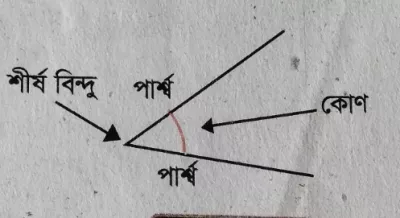 শীর্ষ বিন্দু
পার্শ্ব
কোণ
পার্শ্ব